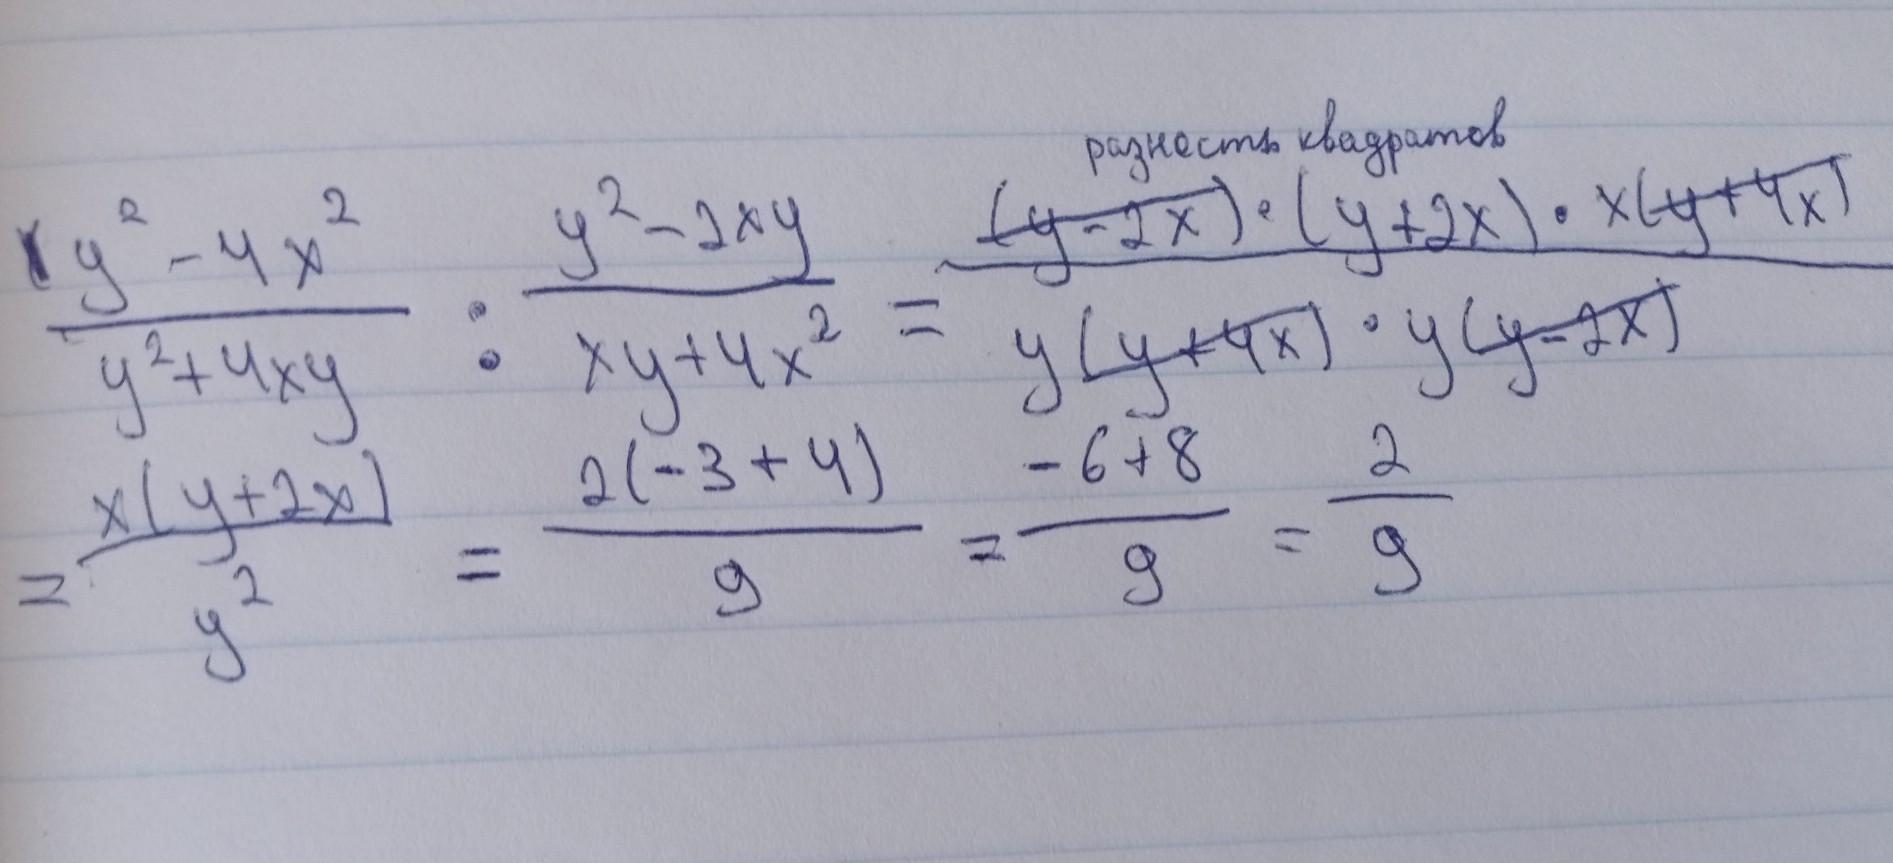 разность квадратов
(y² - 4x²)/(y² + 4xy) : (y² - 2xy)/(xy + 4x²) = ((y - 2x) · (y + 2x) · x(y + 4x))/(y(y + 4x) · y(y - 2x))
= x(y + 2x)/y² = 2(-3 + 4)/9 = (-6 + 8)/9 = 2/9